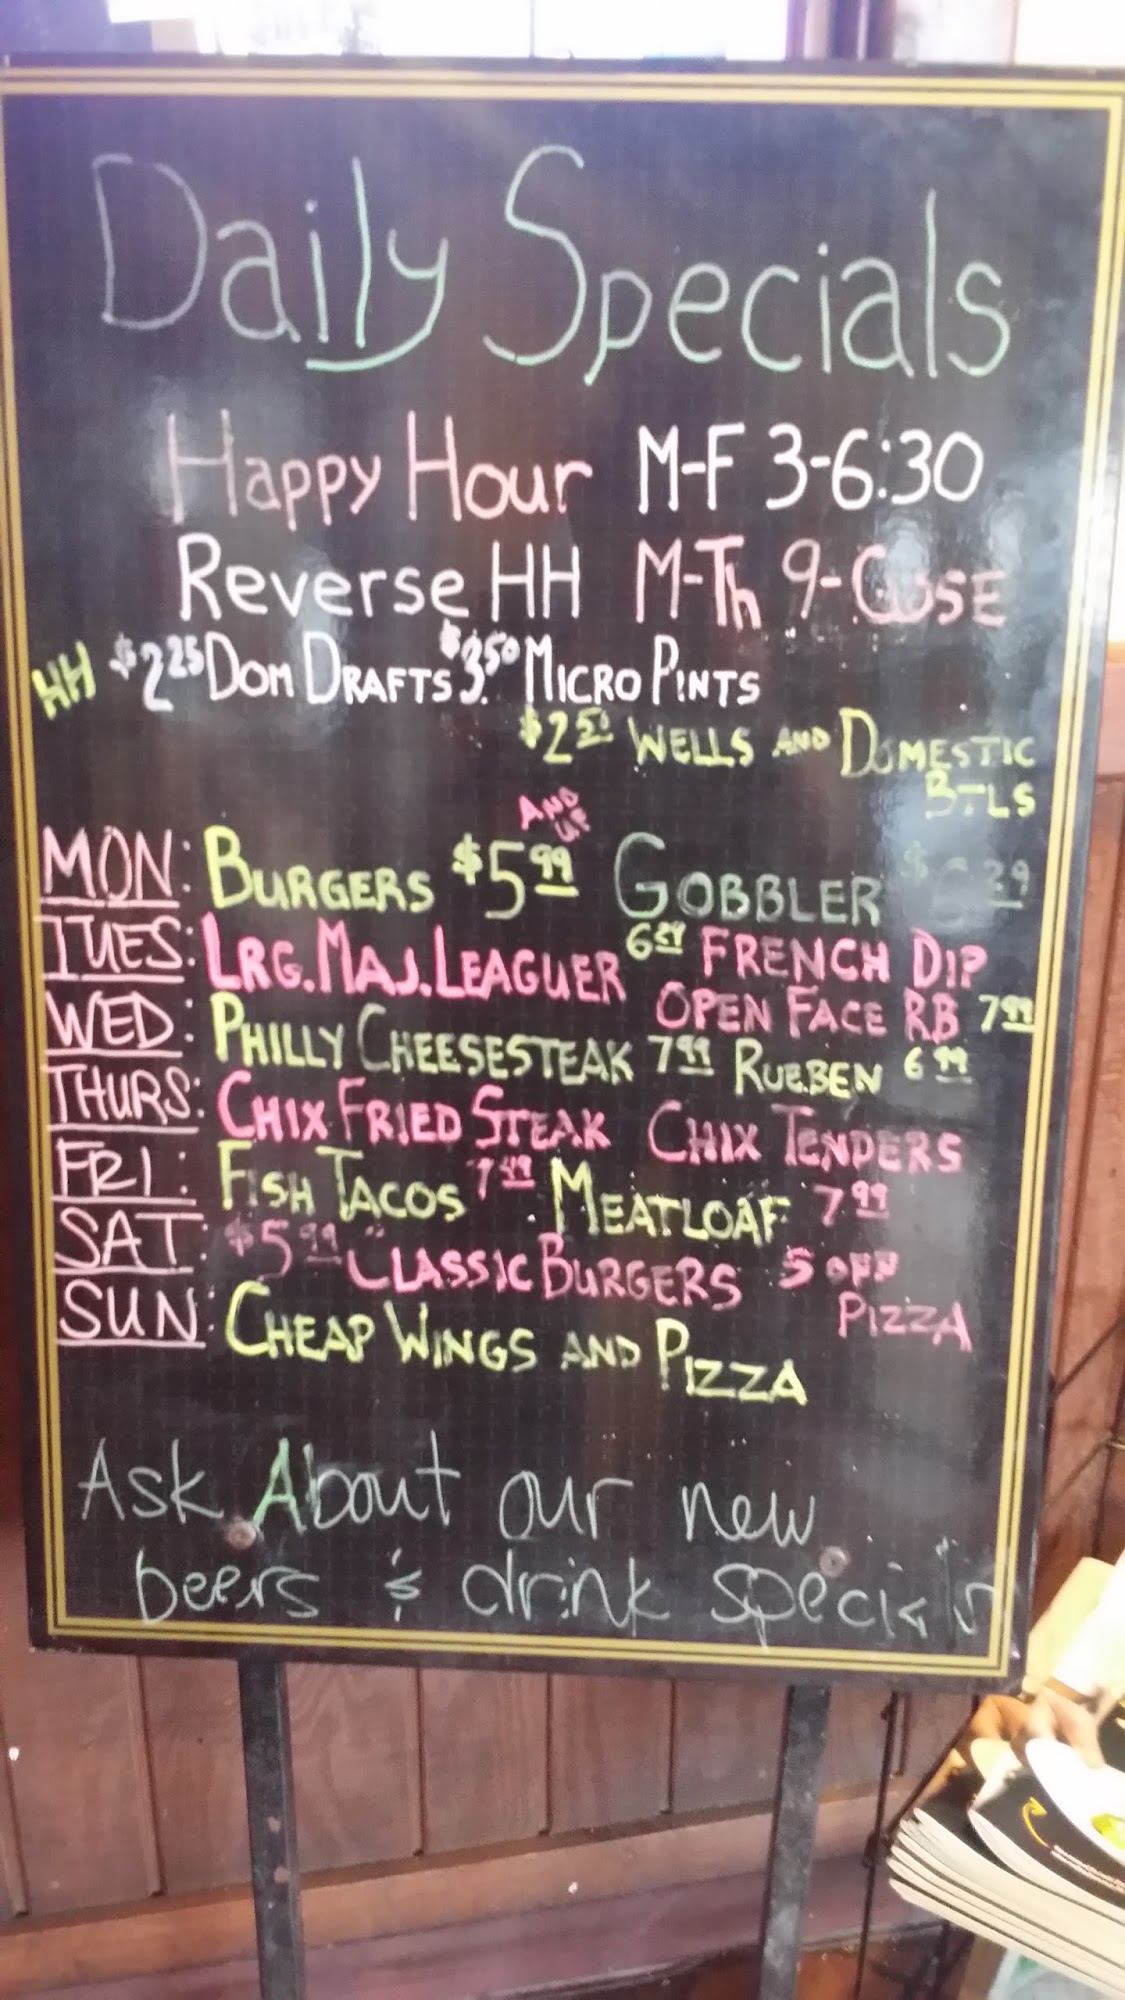 Daily Specials
Happy Hour M-F 3-6:30
Reverse HH M-Th 9-CLOSE
HH $2.25 DOM DRAFTS $3.50 MICRO PINTS
$2.50 WELLS AND DOMESTIC
BTLS
AND UP
MON: BURGERS $5.99 GOBBLER
TUES: LRG. MAJ. LEAGUER 6.29 FRENCH DIP
OPEN FACE RB 7.99
WED: PHILLY CHEESESTEAK 7.99 RUEBEN 6.99
THURS: CHIX FRIED STEAK CHIX TENDERS
7.49 7.99
FRI: FISH TACOS MEATLOAF
SAT: $5.99 CLASSIC BURGERS 5 OFF
PIZZA
SUN: CHEAP WINGS AND PIZZA
Ask About our new
beers & drink specials